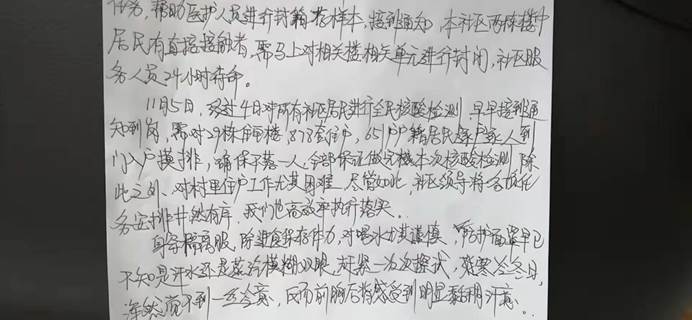 任务，帮助医护人员进行封箱存样本，接到通知，本社区两栋楼中
居民有直接接触者，需马上对相关楼相关单元进行封闭，社区服
务人员24小时待命。
11月5日，经过4日对所有社区居民进行全民核酸检测，早早接到通
知到岗，需对29栋住宅楼，878套住户，651户户籍居民逐户逐人到
门入户摸排，确保不落一人，全部保证做完核本次核酸检测，除
此之外，对村里住户工作尤其困难，尽管如此，社区领导将各项任
务安排井然有序，我们也高效率执行落实。
身穿隔离服，除进食保存体力，对喝水尤其谨慎，防护面罩早已
不知是汗水还是蒸汽模糊双眼，赶紧一次次擦拭，残寒冷冬日，
浑然闻不到一丝冷意，反而前胸后背感受到明显黏稠汗意...